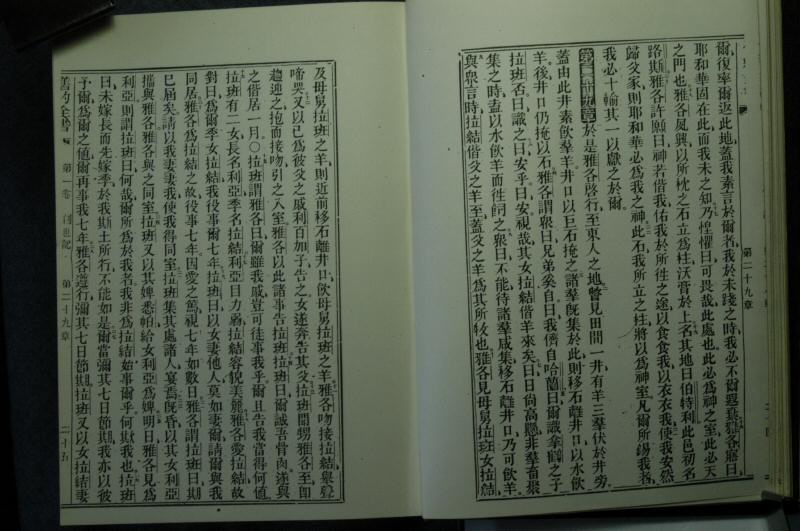 爾復率爾返此地蓋我素言於爾者我於未踐之時我必不爾遐棄雅各寤曰
耶和華固在此而我未之知乃惶懼曰可畏哉此處也此必爲神之室此必天
之門也雅各夙興以所枕之石立爲柱沃膏於上名其地曰伯特利此邑初名
路斯雅各許願曰神若偕我佑我於所往之途以食食我以衣衣我使我安然
歸父家則耶和華必爲我之神此石我所立之柱將以爲神室凡爾所錫我者
我必十輸其一以獻之於爾
第二十九章於是雅各啓行至東人之地瞥見田間一井有羊三羣伏於井旁
蓋由此井素飲羣羊井口以巨石掩之諸羣旣集於此則移石離井口以水飲
羊後井口仍掩以石雅各謂衆曰兄弟奚自曰我儕自哈蘭曰爾識拿鶴之子
拉班否曰識之曰安乎曰安視哉其女拉結偕羊來矣曰日尚高懸非羣畜聚
集之時盍以水飲羊而往飼之衆曰不能待諸羣咸集移石離井口乃可飲羊
與衆言時拉結偕父之羊至蓋父之羊爲其所牧也雅各見母舅拉班女拉結
第二十九章
及母舅拉班之羊則近前移石離井口飲母舅拉班之羊雅各吻接拉結舉聲
啼哭又以己爲彼父之戚利百加子告之女遂奔告其父拉班聞甥雅各至卽
趨迎之抱而接吻引之入室雅各以此諸事告拉班拉班曰爾誠吾骨肉遂與
之偕居一月○拉班謂雅各曰爾雖我戚豈可徒事我乎爾且告我當得何値
拉班有二女長名利亞季名拉結利亞目力弱拉結容貌美麗雅各愛拉結故
對曰我爲爾季女拉結我役事爾七年拉班曰以女妻他人莫如妻爾請爾與我
同居雅各爲拉結之故役事七年因愛之篤視七年如數日雅各謂拉班曰期
已屆矣請以我妻妻我使我得同室拉班集其處諸人宴焉旣昏以其女利亞
攜與雅各雅各與之同室拉班又以其婢悉帕給女利亞爲婢明日雅各見爲
利亞則謂拉班曰何哉爾所爲於我者我非爲拉結始事爾乎何欺我也拉班
曰未嫁長而先嫁季於我斯土所行不能如是爾當彌其七日節期我亦以彼
予爾爲爾之値爾再事我七年雅各遵行彌其七日節期拉班又以女拉結妻
舊約全書 第一卷 創世記 第二十九章 二十五